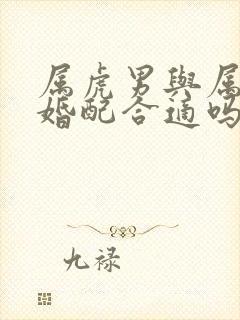 属虎男與属
婚配合適吗
九禄